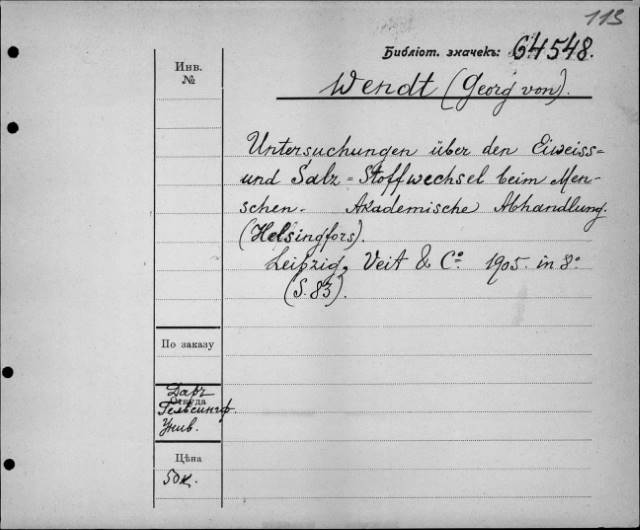 113
Библіот. значекъ: 64548.
Инв.
№
Wendt (Georg von).
Untersuchungen über den Eiweiss=
und Salz=Stoffwechsel beim Men-
schen. Akademische Abhandlung.
(Helsingfors).
Leipzig, Veit & Cº 1905. in 8º
(S. 83).
По заказу
Даръ
Откуда
Гельсингф.
Унив.
Цѣна
50к.